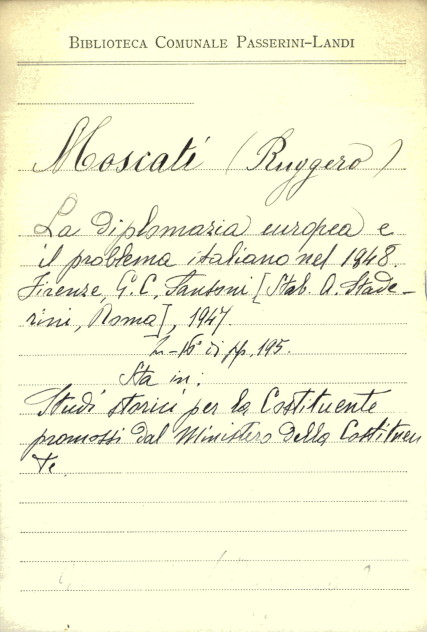 BIBLIOTECA COMUNALE PASSERINI-LANDI
Moscati (Ruggero)
La diplomazia europea e
il problema italiano nel 1848.
Firenze, G. C. Sansoni [Stab. A. Stade-
rini, Roma], 1947.
in-16° di pp. 195.
Sta in:
Studi storici per la Costituente
promossi dal Ministero della Costituen
te.